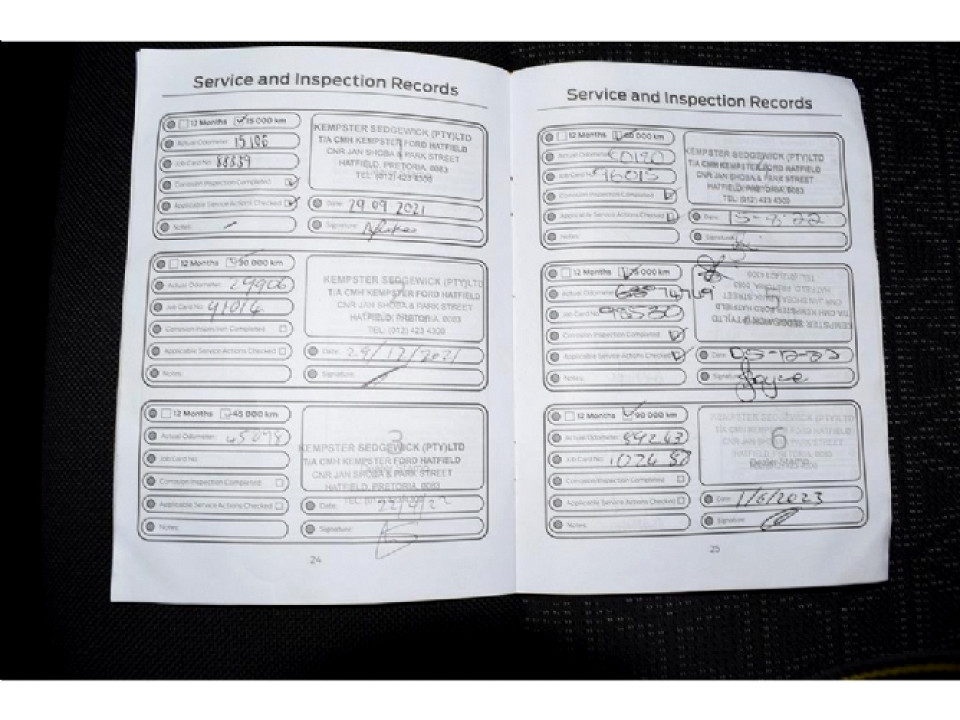 Service and Inspection Records
12 Months 15 000 km
Actual Odometer: 15 106
Job Card No: 88839
Corrosion Inspection Completed
Applicable Service Actions Checked
Notes:
KEMPSTER SEDGEWICK (PTY)LTD
T/A CMH KEMPSTER FORD HATFIELD
CNR JAN SHOBA & PARK STREET
HATFIELD, PRETORIA, 0083
TEL: (012) 423 4300
Date: 29 09 2021
Signature:
12 Months 30 000 km
Actual Odometer: 29906
Job Card No: 91014
Corrosion Inspection Completed
Applicable Service Actions Checked
Notes:
KEMPSTER SEDGEWICK (PTY)LTD
T/A CMH KEMPSTER FORD HATFIELD
CNR JAN SHOBA & PARK STREET
HATFIELD, PRETORIA, 0083
TEL: (012) 423 4300
Date: 29/12/2021
Signature:
12 Months 45 000 km
Actual Odometer: 45098
Job Card No:
Corrosion Inspection Completed
Applicable Service Actions Checked
Notes:
3
KEMPSTER SEDGEWICK (PTY)LTD
T/A CMH KEMPSTER FORD HATFIELD
CNR JAN SHOBA & PARK STREET
HATFIELD, PRETORIA, 0083
Date:
Signature:
24
Service and Inspection Records
12 Months 60 000 km
Actual Odometer: 60180
Job Card No: 96015
Corrosion Inspection Completed
Applicable Service Actions Checked
Notes:
KEMPSTER SEDGEWICK (PTY)LTD
T/A CMH KEMPSTER FORD HATFIELD
CNR JAN SHOBA & PARK STREET
HATFIELD, PRETORIA, 0083
TEL: (012) 423 4300
Date:
Signature:
12 Months 75 000 km
Actual Odometer:
Job Card No: 98530
Corrosion Inspection Completed
Applicable Service Actions Checked
Notes:
5
KEMPSTER SEDGEWICK (PTY)LTD
T/A CMH KEMPSTER FORD HATFIELD
CNR JAN SHOBA & PARK STREET
HATFIELD, PRETORIA, 0083
TEL: (012) 423 4300
Date:
Signature: Joyce
12 Months 90 000 km
Actual Odometer: 89243
Job Card No:
Corrosion Inspection Completed
Applicable Service Actions Checked
Notes:
6
KEMPSTER SEDGEWICK (PTY)LTD
T/A CMH KEMPSTER FORD HATFIELD
Date: 1/6/2023
Signature:
25